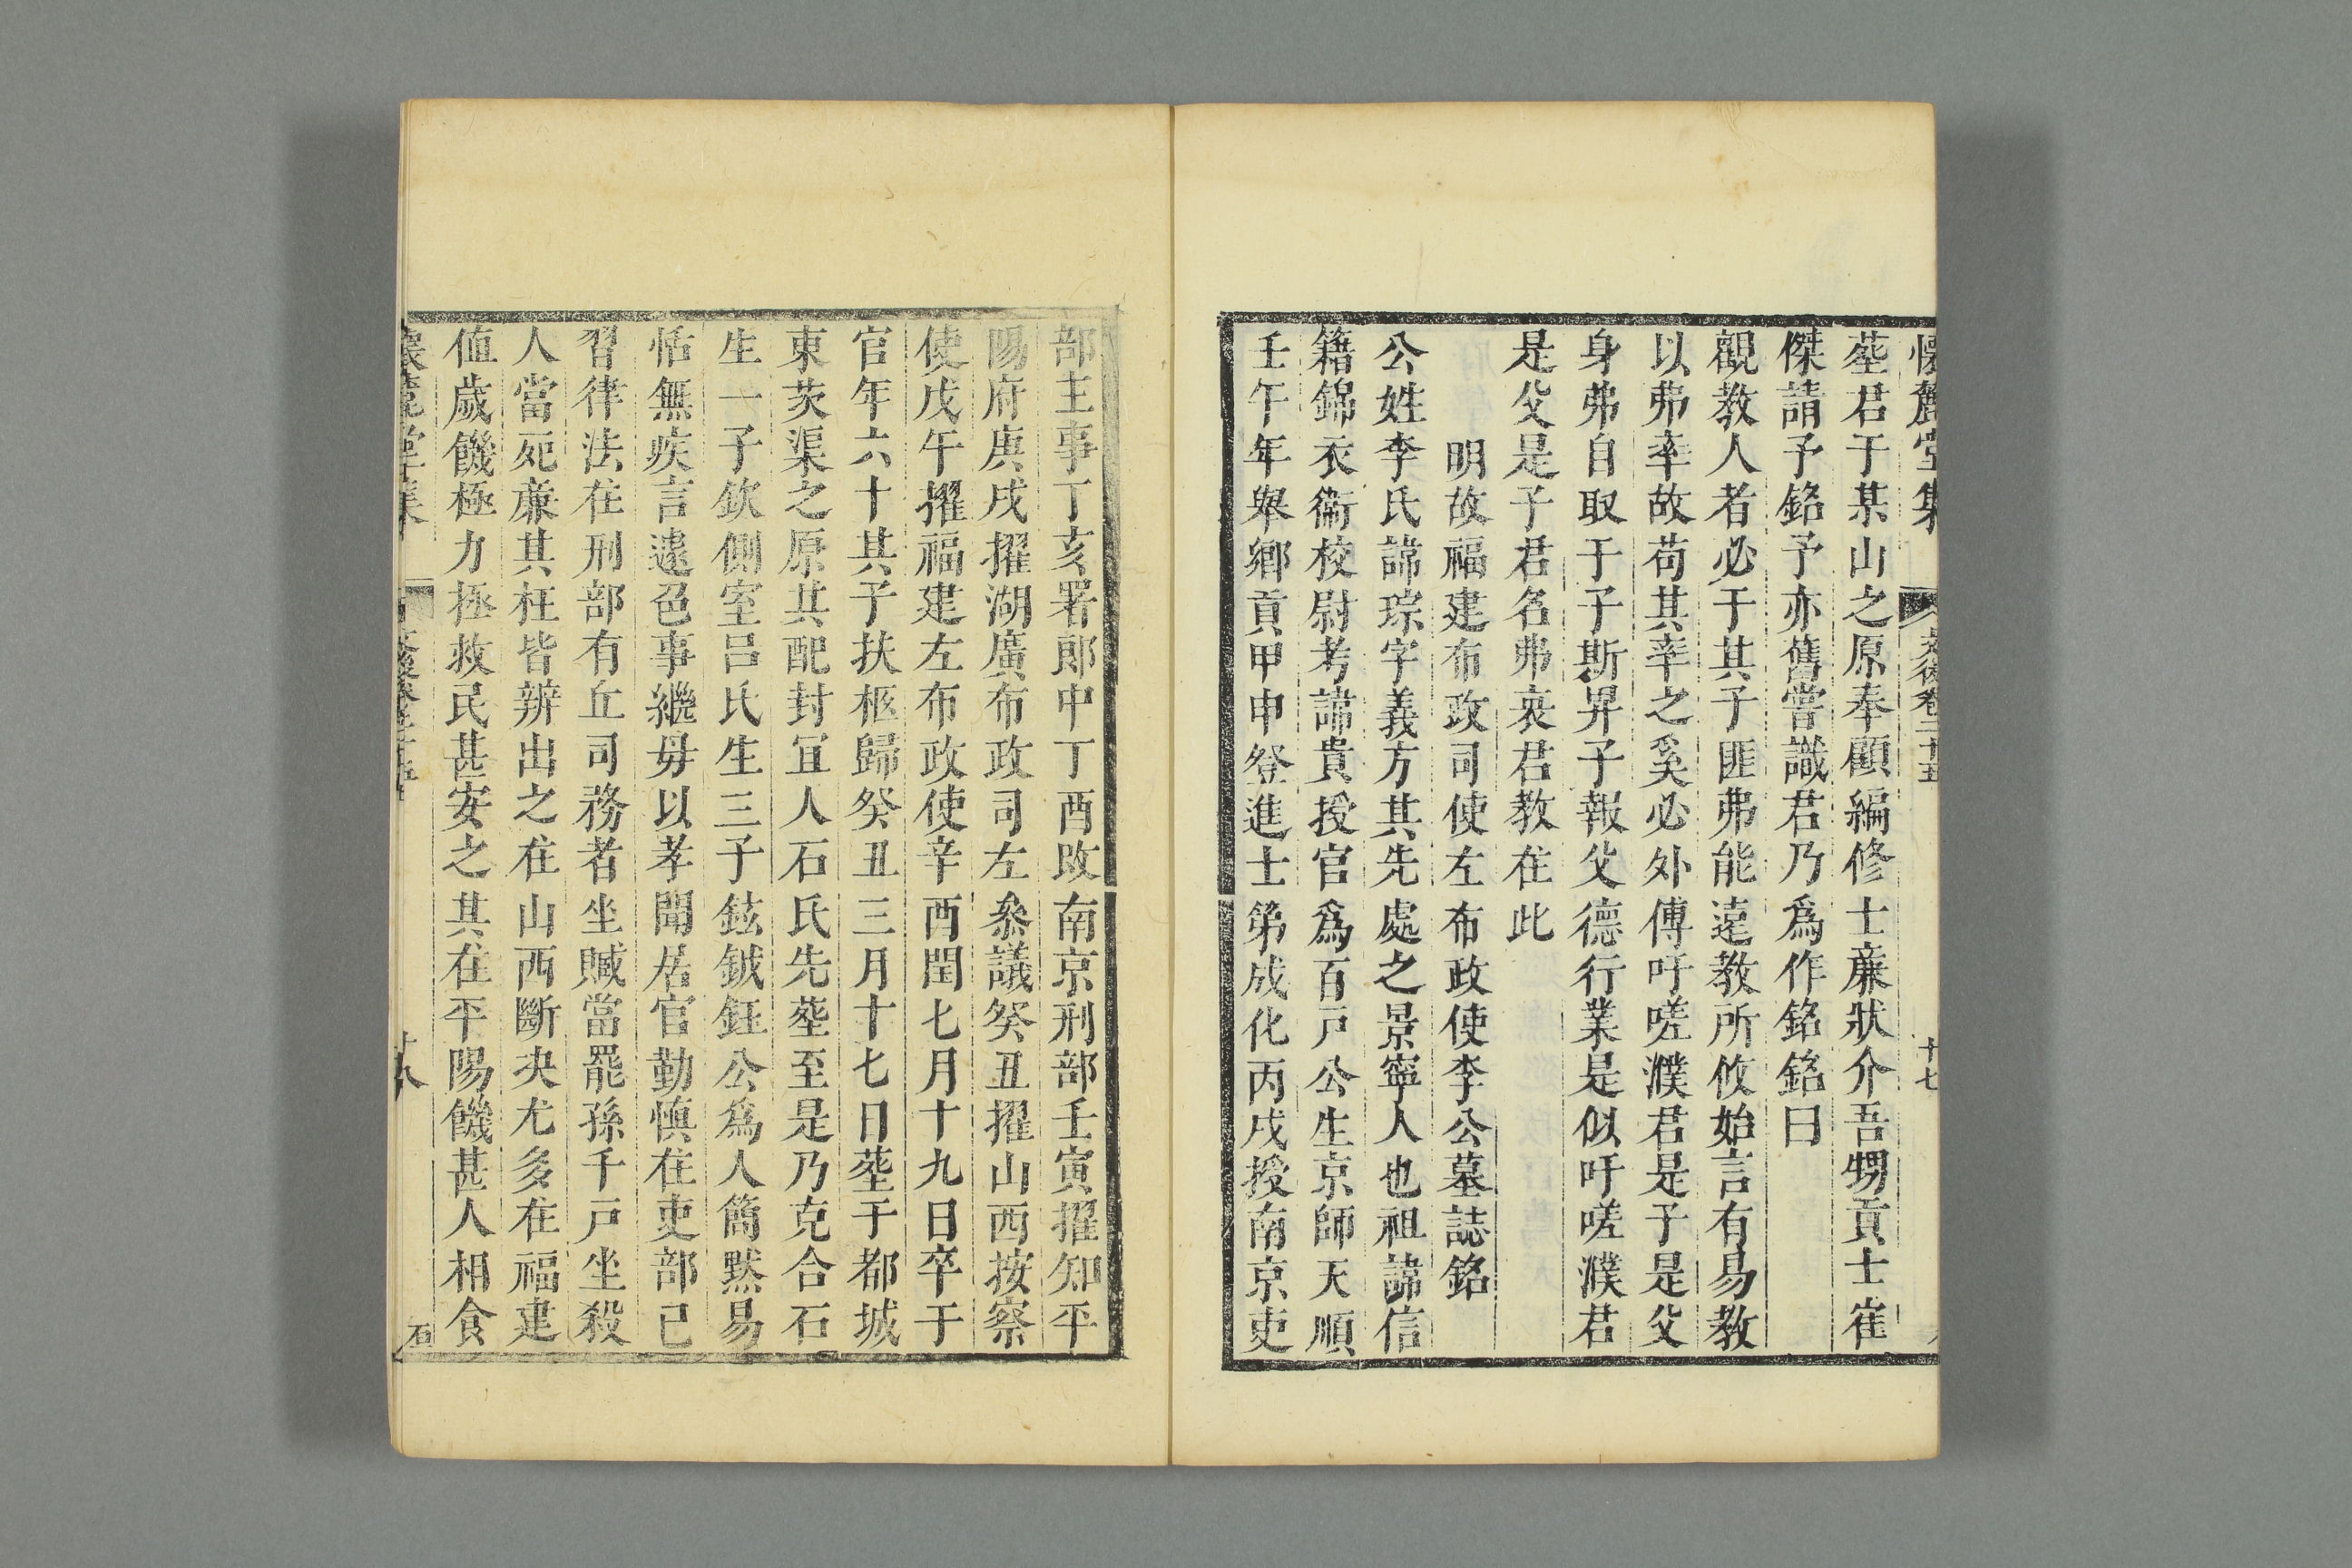 懷麓堂集 文後卷二十五 十七
塟君于某山之原奉顧編修士㢘狀介吾甥貢士崔
傑請予銘予亦舊嘗識君乃爲作銘銘曰
觀教人者必于其子匪弗能遠教所攸始言有易教
以弗率故苟其幸之奚必外傅吁嗟濮君是子是父
身弗自取于子斯昇子報父德行業是似吁嗟濮君
是父是子君名弗衰君教在此
明故福建布政司使左布政使李公墓誌銘
公姓李氏諱琮字義方其先處之景寧人也祖諱信
籍錦衣衞校尉考諱貴授官爲百戸公生京師天順
壬午年舉鄉貢甲申登進士第成化丙戌授南京吏
部主事丁亥署郎中丁酉攺南京刑部壬寅擢知平
陽府庚戌擢湖廣布政司左叅議癸丑擢山西按察
使戊午擢福建左布政使辛酉閏七月十九日卒于
官年六十其子扶柩歸癸丑三月十七日塟于都城
東茨渠之原其配封宜人石氏先塟至是乃克合石
生一子欽側室吕氏生三子鉉鉞鈺公爲人簡黙易
恬無疾言遽色事繼毋以孝聞居官勤慎在吏部已
習律法在刑部有丘司務者坐贓當罷孫千戸坐殺
人當死㢘其枉皆辨出之在山西斷决尤多在福建
值歲饑極力拯救民甚安之其在平陽饑甚人相食
懷麓堂集 文後卷二十五 十八